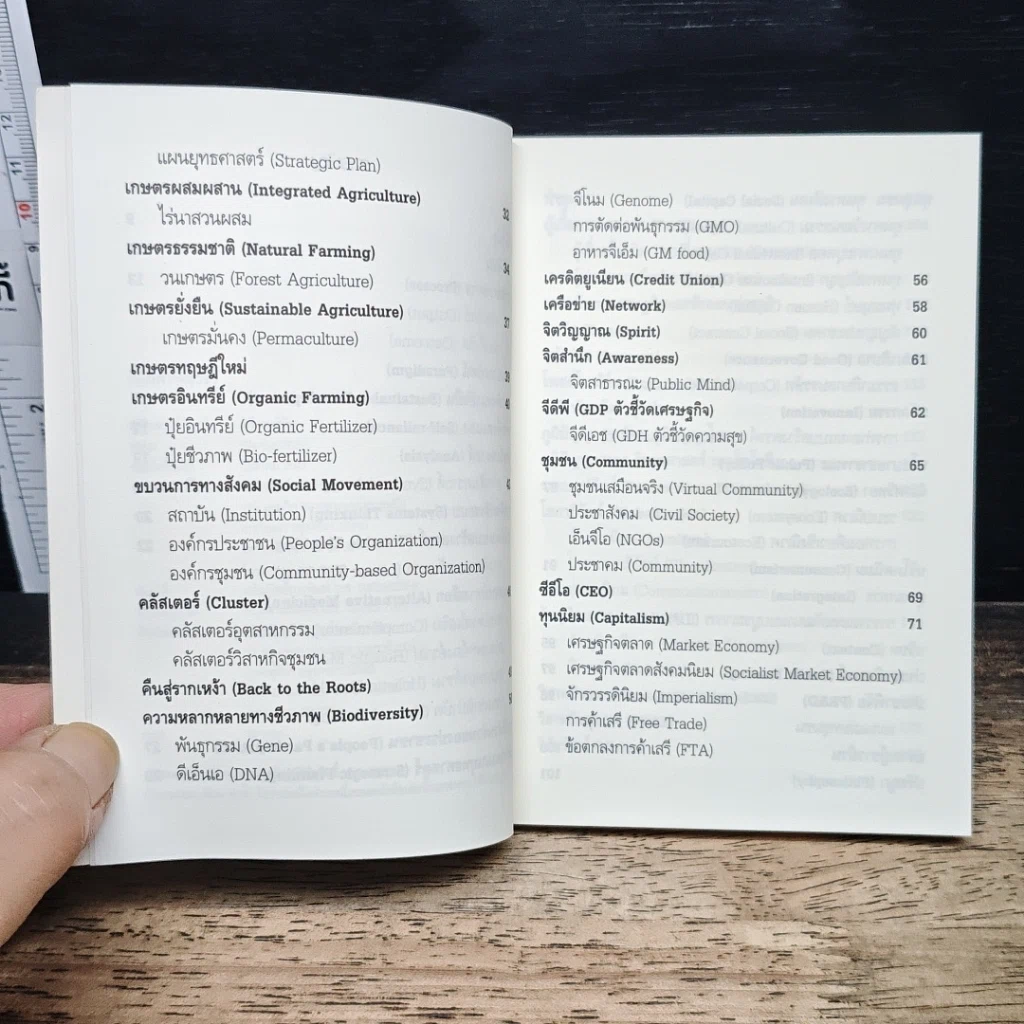 แผนยุทธศาสตร์ (Strategic Plan)
เกษตรผสมผสาน (Integrated Agriculture)
ไร่นาสวนผสม
เกษตรธรรมชาติ (Natural Farming)
วนเกษตร (Forest Agriculture)
เกษตรยั่งยืน (Sustainable Agriculture)
เกษตรมั่นคง (Permaculture)
เกษตรทฤษฎีใหม่
เกษตรอินทรีย์ (Organic Farming)
ปุ๋ยอินทรีย์ (Organic Fertilizer)
ปุ๋ยชีวภาพ (Bio-fertilizer)
ขบวนการทางสังคม (Social Movement)
สถาบัน (Institution)
องค์กรประชาชน (People's Organization)
องค์กรชุมชน (Community-based Organization)
คลัสเตอร์ (Cluster)
คลัสเตอร์อุตสาหกรรม
คลัสเตอร์วิสาหกิจชุมชน
คืนสู่รากเหง้า (Back to the Roots)
ความหลากหลายทางชีวภาพ (Biodiversity)
พันธุกรรม (Gene)
ดีเอ็นเอ (DNA)
จีโนม (Genome)
การตัดต่อพันธุกรรม (GMO)
อาหารจีเอ็ม (GM food)
เครดิตยูเนียน (Credit Union) 56
เครือข่าย (Network) 58
จิตวิญญาณ (Spirit) 60
จิตสำนึก (Awareness) 61
จิตสาธารณะ (Public Mind)
จีดีพี (GDP ตัวชี้วัดเศรษฐกิจ) 62
จีดีเอช (GDH ตัวชี้วัดความสุข)
ชุมชน (Community) 65
ชุมชนเสมือนจริง (Virtual Community)
ประชาสังคม (Civil Society)
เอ็นจีโอ (NGOs)
ประชาคม (Community)
ซีอีโอ (CEO) 69
ทุนนิยม (Capitalism) 71
เศรษฐกิจตลาด (Market Economy)
เศรษฐกิจตลาดสังคมนิยม (Socialist Market Economy)
จักรวรรดินิยม (Imperialism)
การค้าเสรี (Free Trade)
ข้อตกลงการค้าเสรี (FTA)